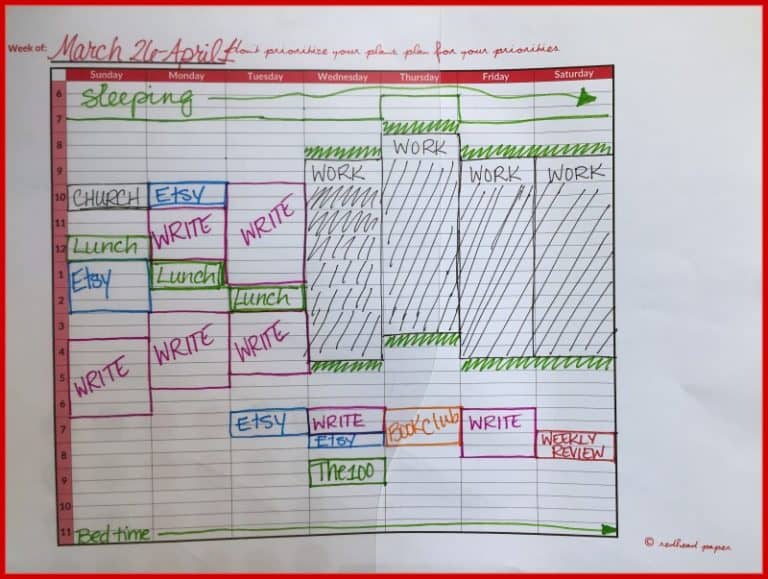 Week of: March 26-April 1
don't prioritize your plans plan for your priorities
Sunday Monday Tuesday Wednesday Thursday Friday Saturday
6
Sleeping
7
8
WORK
9
WORK WORK WORK
10
CHURCH Etsy
WRITE
11
WRITE
Lunch
12
Etsy
1
Lunch
Lunch
2
3
WRITE
WRITE
4
WRITE
5
6
Etsy WRITE BOOKCLUB WRITE
7
Etsy
WEEKLY
REVIEW
8
The 100
9
10
11
Bedtime
© redhead paper